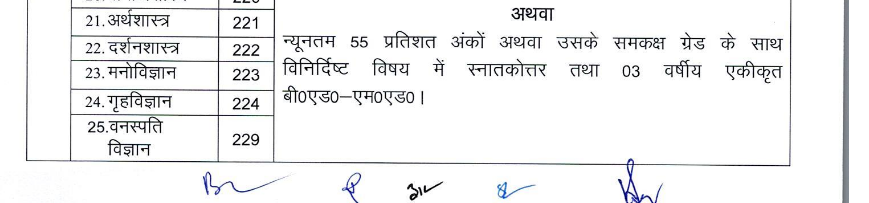 अथवा
21.अर्थशास्त्र 221
न्यूनतम 55 प्रतिशत अंकों अथवा उसके समकक्ष ग्रेड के साथ
22. दर्शनशास्त्र 222
विनिर्दिष्ट विषय में स्नातकोत्तर तथा 03 वर्षीय एकीकृत
23. मनोविज्ञान 223
बी0एड0–एम0एड0।
24. गृहविज्ञान 224
25.वनस्पति
विज्ञान 229